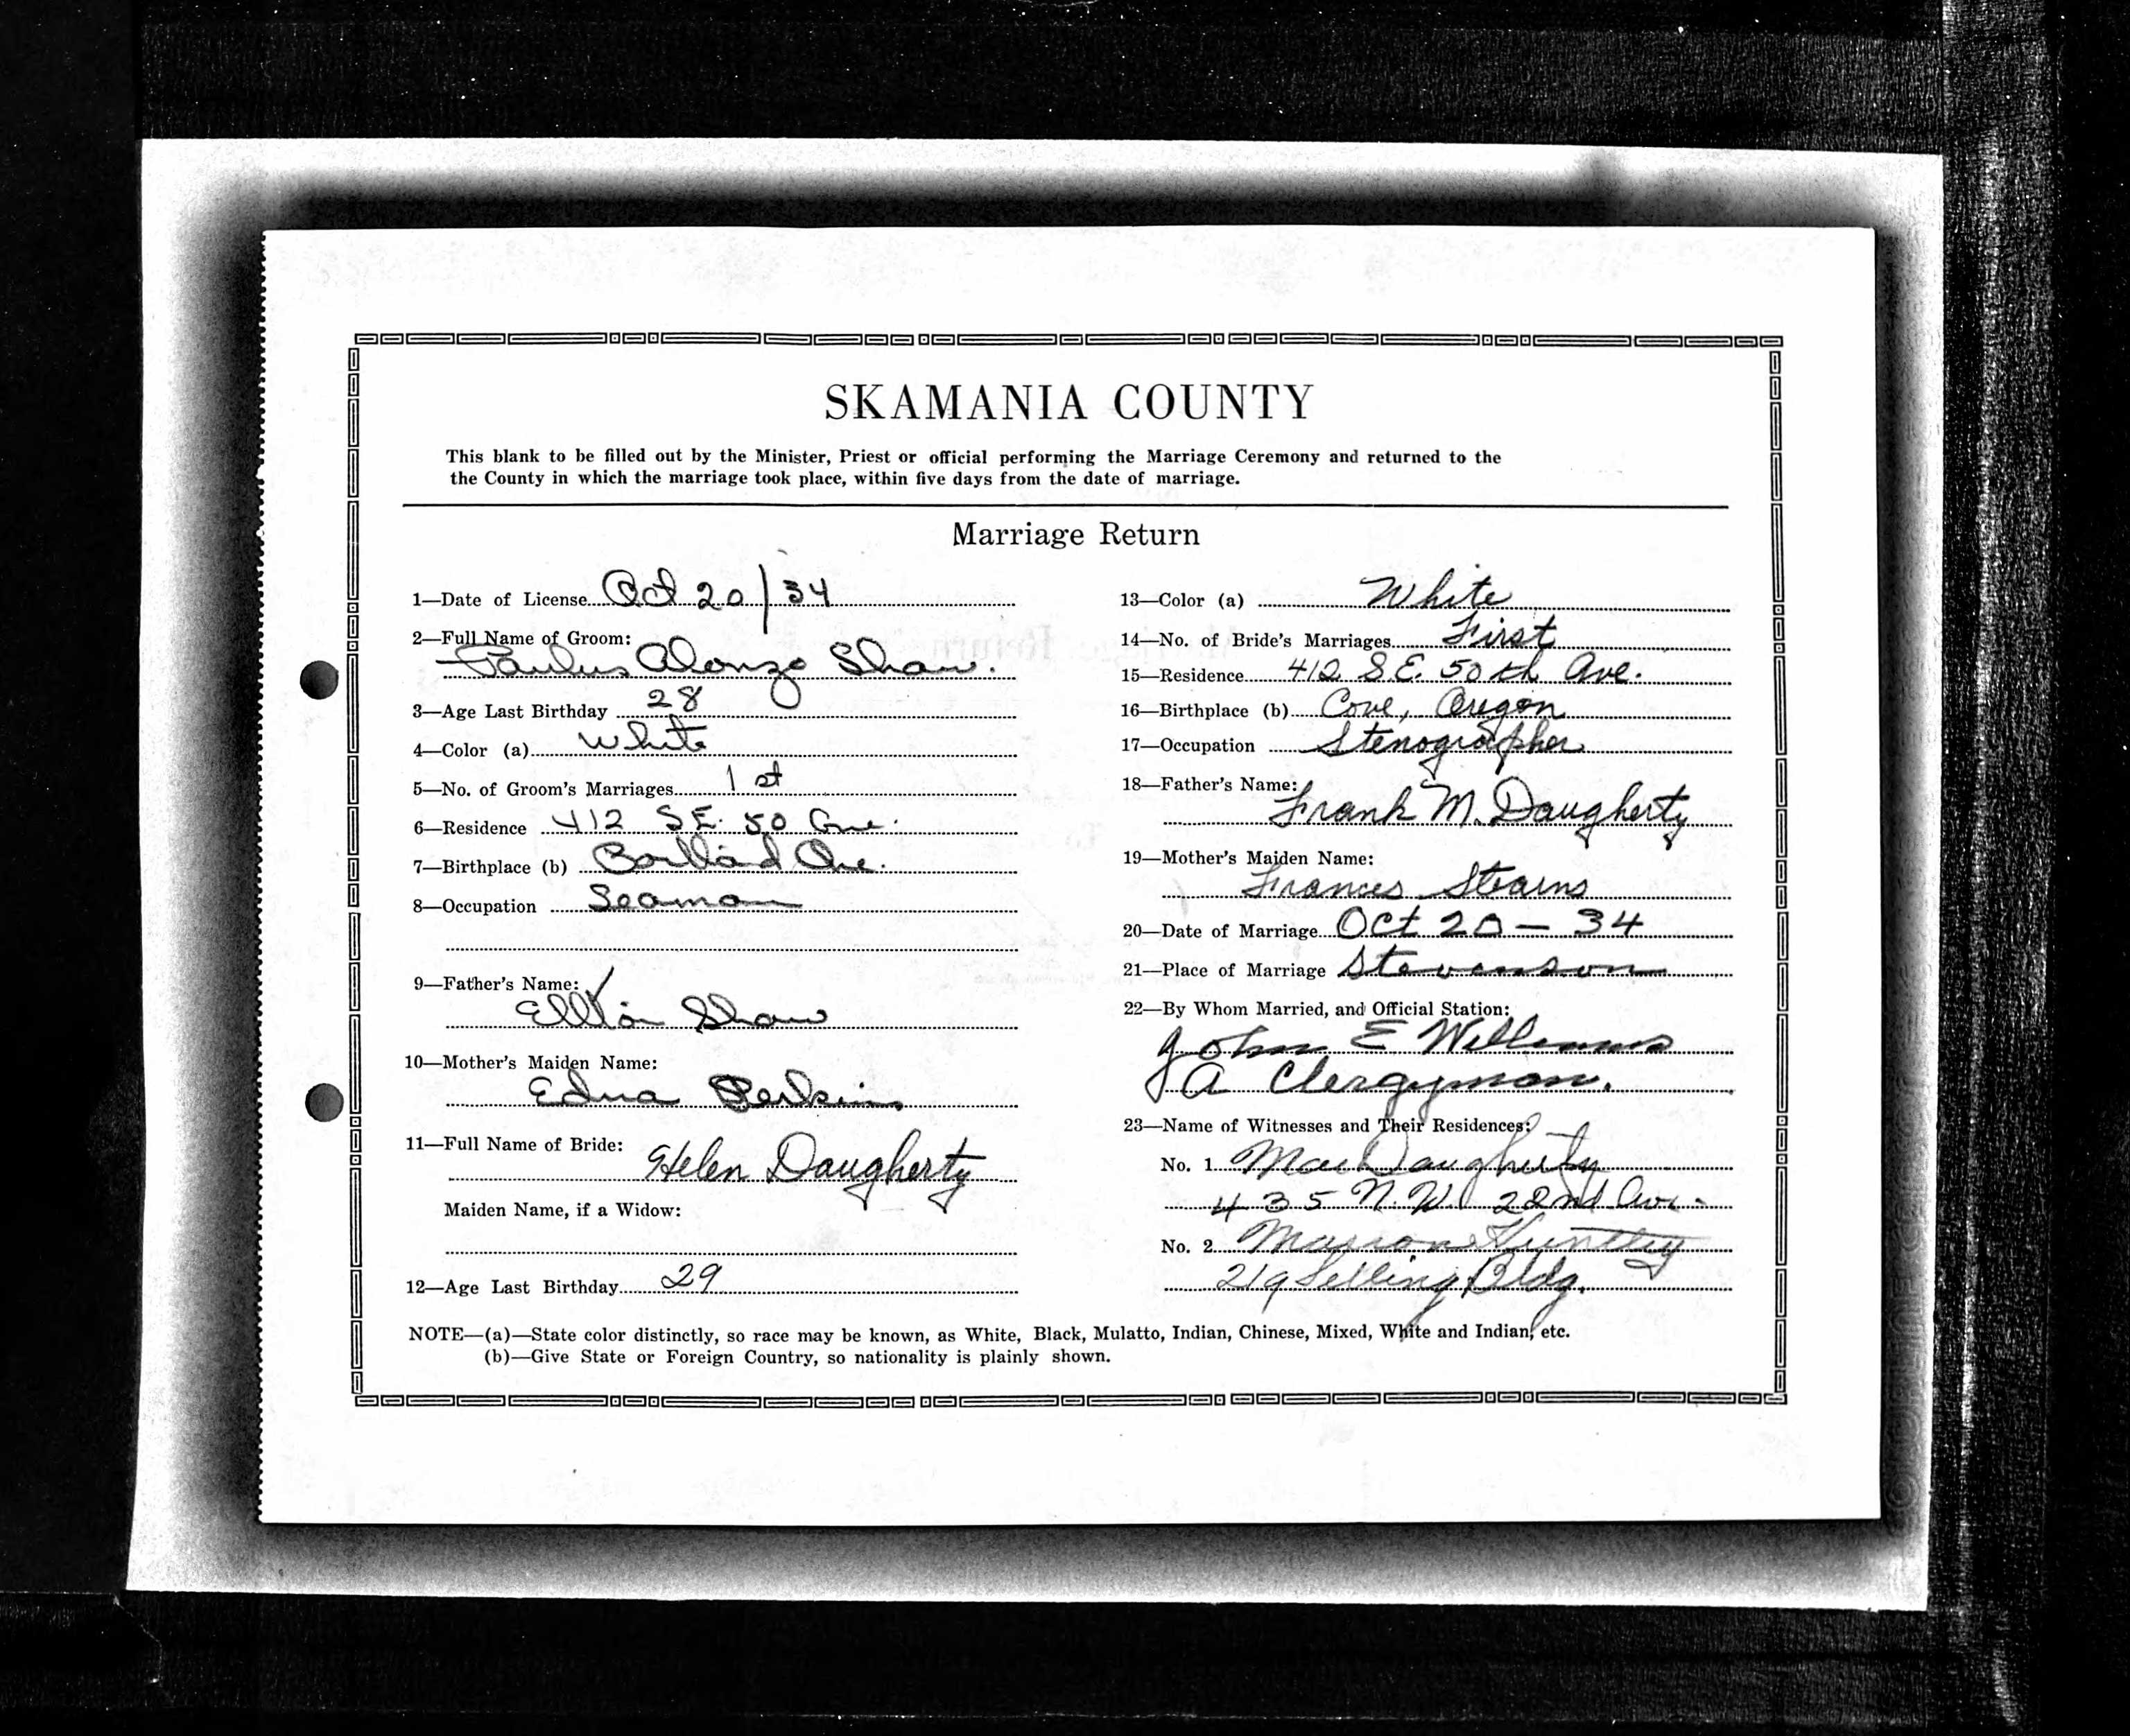 SKAMANIA COUNTY
This blank to be filled out by the Minister, Priest or official performing the Marriage Ceremony and returned to the
the County in which the marriage took place, within five days from the date of marriage.
Marriage Return
1—Date of License Oct 20/34
2—Full Name of Groom:
Paulus Alonzo Shaw.
3—Age Last Birthday 28
4—Color (a) White
5—No. of Groom's Marriages 1st
6—Residence 412 S.E. 50 Ave.
7—Birthplace (b) Ore.
8—Occupation Seaman
9—Father's Name:
Shaw
10—Mother's Maiden Name:
Edna Perkins
11—Full Name of Bride: Helen Daugherty
Maiden Name, if a Widow:
12—Age Last Birthday 29
13—Color (a) White
14—No. of Bride's Marriages First
15—Residence 412 S.E. 50th Ave.
16—Birthplace (b) Cove, Oregon
17—Occupation Stenographer
18—Father's Name:
Frank M. Daugherty
19—Mother's Maiden Name:
Frances Stearns
20—Date of Marriage Oct 20 — 34
21—Place of Marriage Stevenson
22—By Whom Married, and Official Station:
John E Williams
A Clergyman.
23—Name of Witnesses and Their Residences:
No. 1 Mae Daugherty
435 N.W. 22nd Ave.
No. 2 Marion Huntley
219 Selling Bldg.
NOTE—(a)—State color distinctly, so race may be known, as White, Black, Mulatto, Indian, Chinese, Mixed, White and Indian, etc.
(b)—Give State or Foreign Country, so nationality is plainly shown.